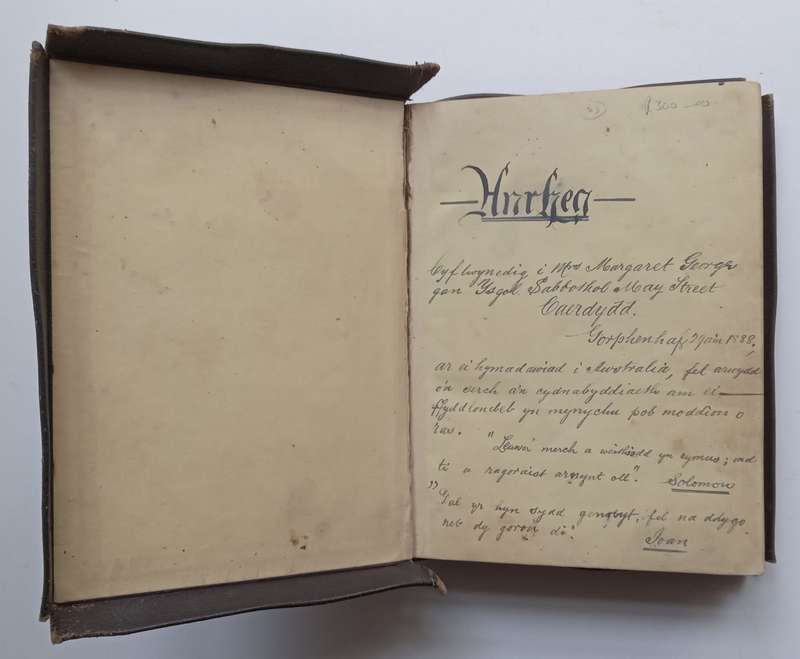 300-00
Anrheg
Cyflwynedig i Mrs Margaret George
gan Ysgol Sabbothol May Street
Caerdydd.
Gorphenhaf 29ain 1888,
ar ei hymadawiad i Awstralia, fel arwydd
o'n serch a'n cydnabyddiaeth am ei
ffyddlondeb yn mynychu pob moddion o
ras. "Llawer merch a weithiodd yn rymus; ond
ti a ragoraist arnynt oll". Solomon
"Dal yr hyn sydd genyt, fel na ddygo
neb dy goron di". Ioan